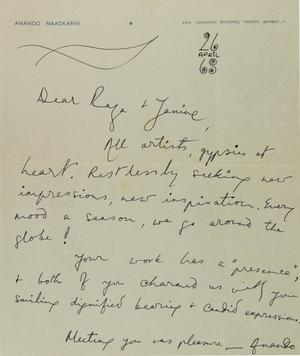 ANANDO NAADKARNI
TARDEO, BOMBAY-7
26
APRIL
68
Dear Raza & Janine,
All artists, gypsies at
heart. Restlessly seeking new
impressions, new inspiration. Every
mood a season, we go around the
globe!
Your work has a "presence",
& both of you charmed us with your
smiling dignified bearing & candid expressions.
Meeting you was pleasure — Anando